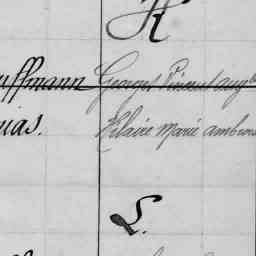 H
uffmann Georges Vincent aug
nias. Hilaire Marie ambrois
L.